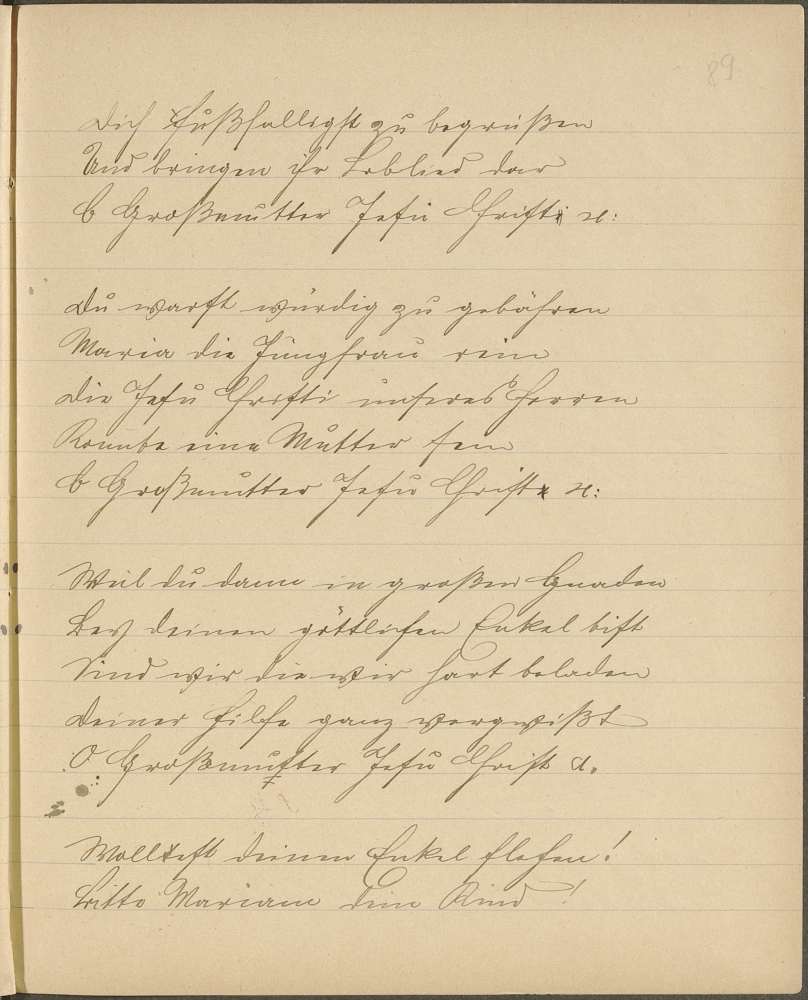 89
Dich Fußfälligst zu begrüßen
Und bringen ihr Loblied dar
O Großmutter Jesu Christi &:
Du warst würdig zu gebähren
Maria die Jungfrau rein
Die Jesu Christi unseres Herren
Konnte eine Mutter sein
O Großmutter Jesu Christ &:
Weil du dann in großen Gnaden
Bey deinen göttlichen Enkel bist
Sind wir die wir hart beladen
Deiner Hilfe ganz vergwißt
O Großmutter Jesu Christ &.
Wollest deinen Enkel flehen!
Bitte Mariam dein Kind!